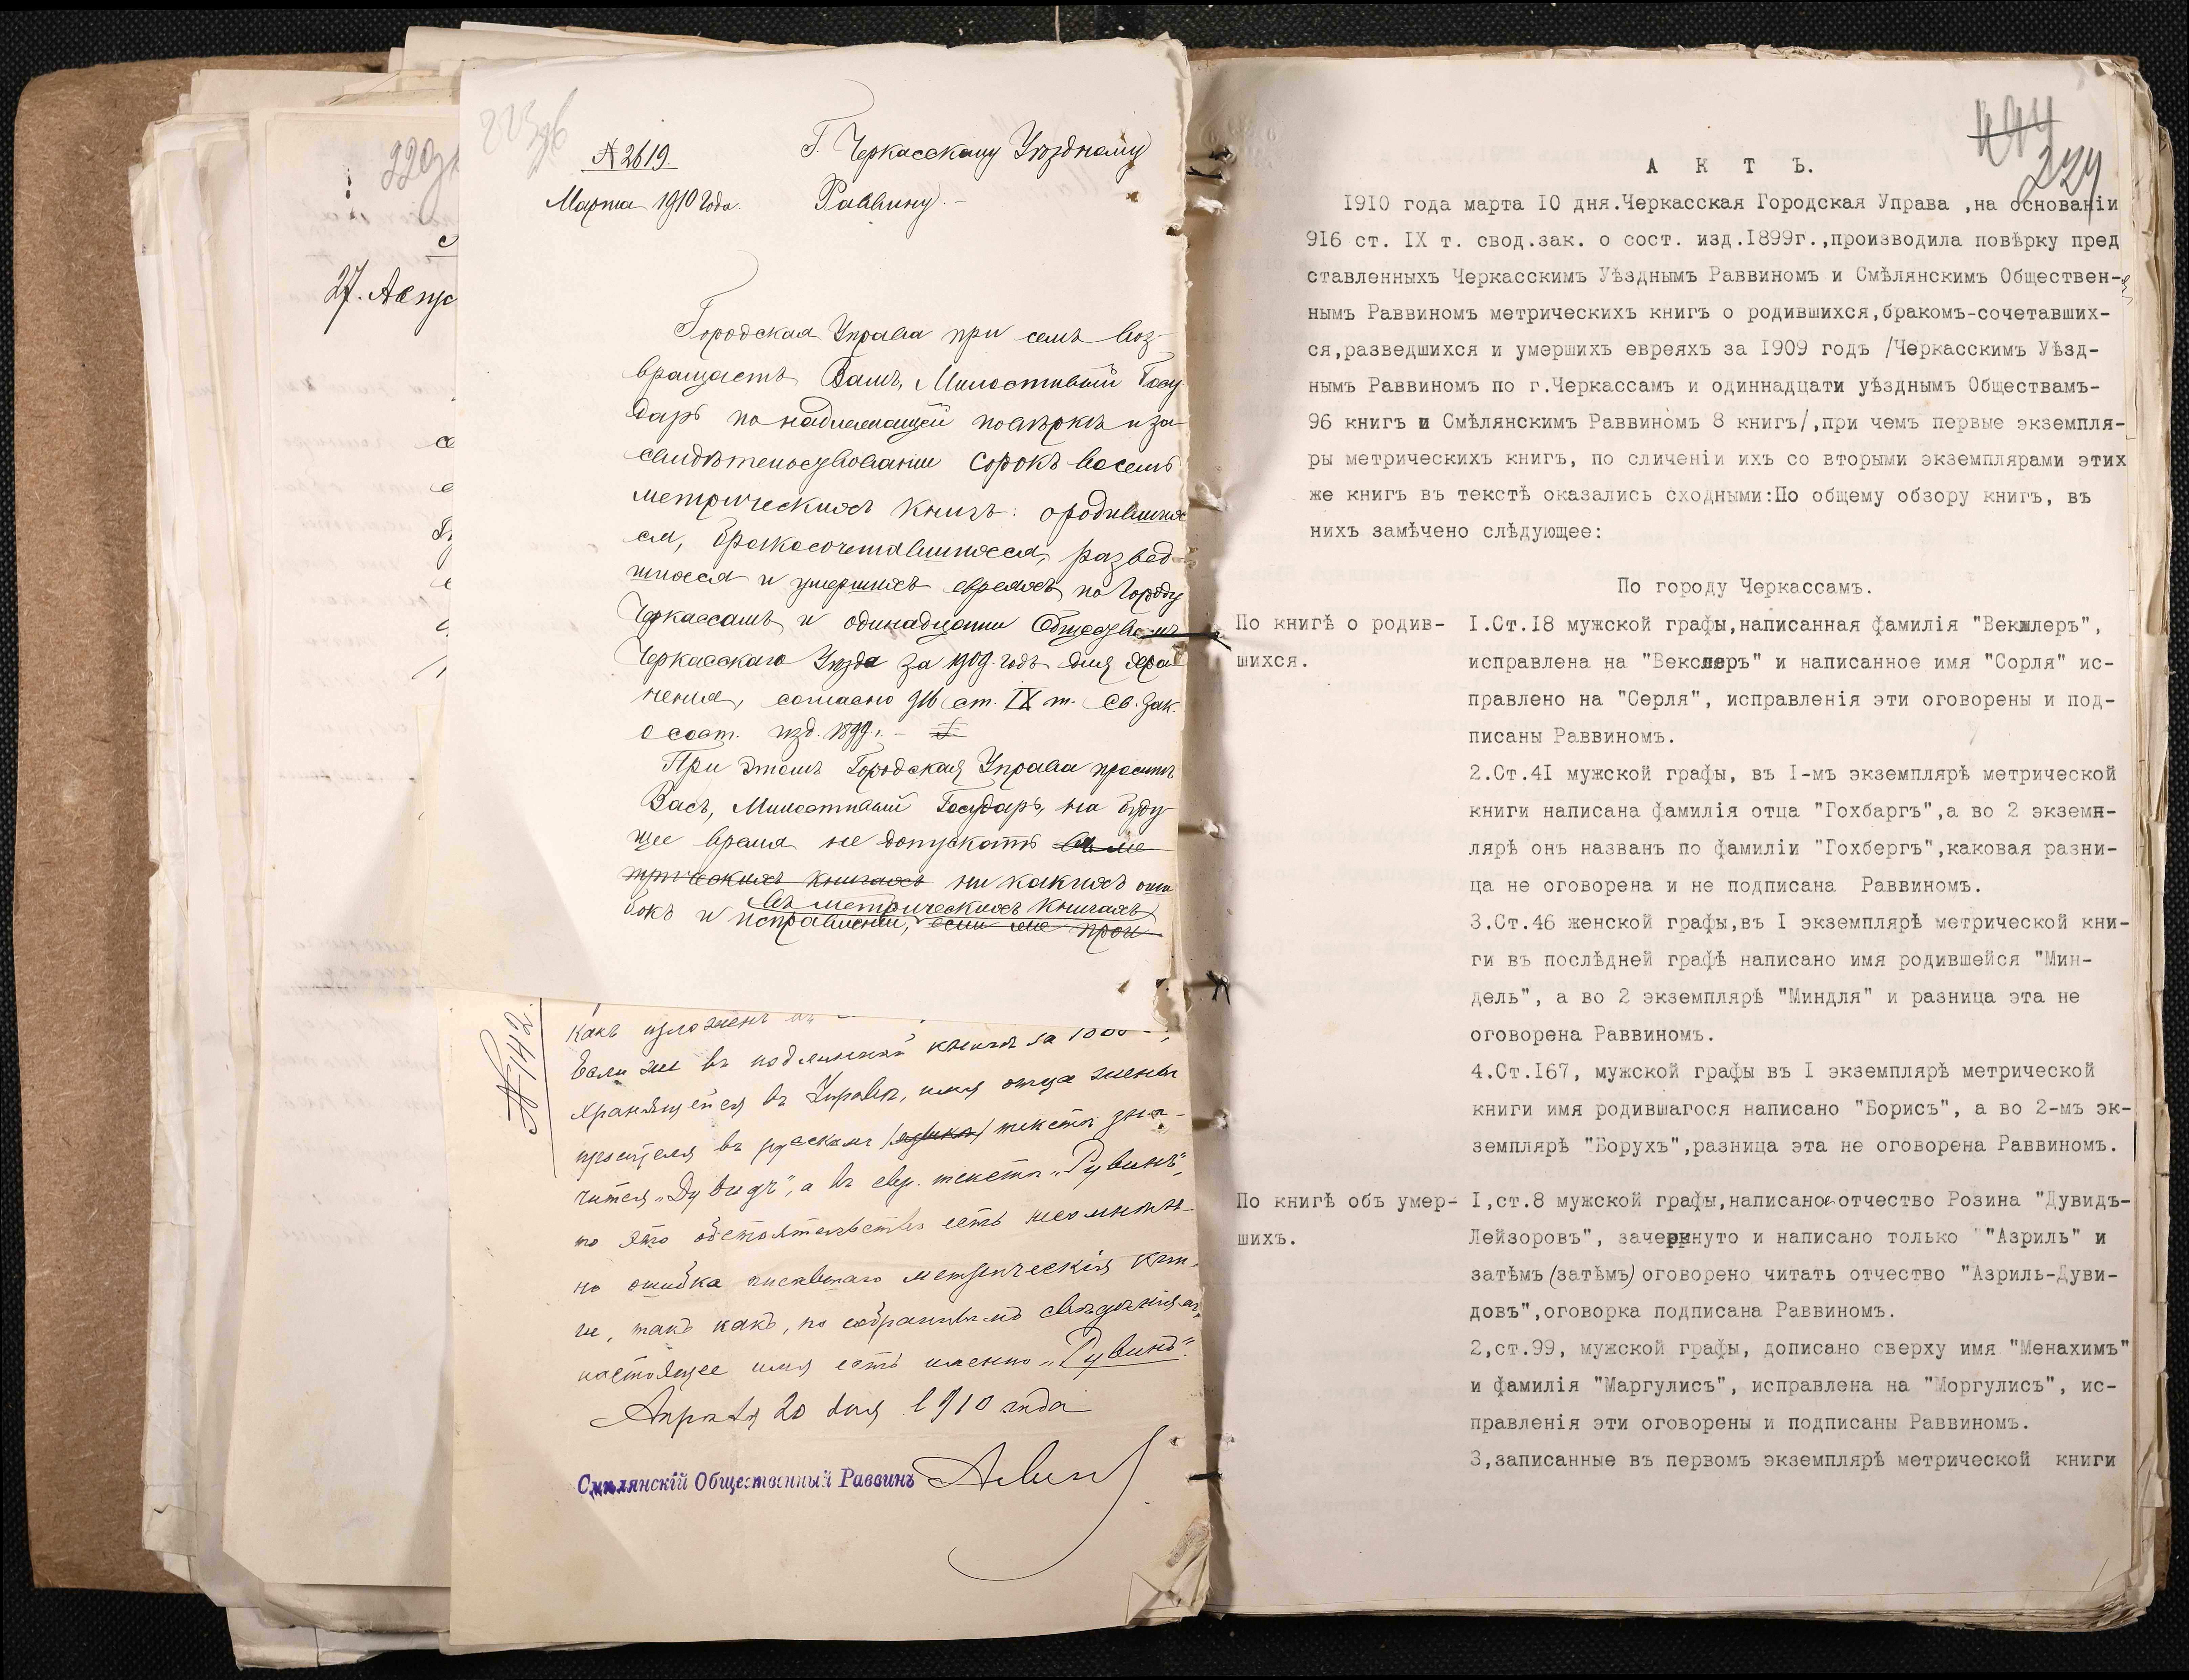 220
27. Авгус
№ 2619.
Марта 1910 года.
Г. Черкасскому Уѣздному
Раввину.
Городская Управа при семъ воз-
вращаетъ Вамъ, Милостивый Госу-
дарь по надлежащей повѣркѣ и за-
свидѣтельствованіи сорокъ восемь
метрическихъ книгъ: о родившихся
ся, бракосочетавшихся, развед-
шихся и умершихъ евреяхъ по городу
Черкассамъ и одинадцати Обществамъ
Черкасскаго Уѣзда за 1909 годъ для хра
ненія, согласно 916 ст. IX т. Св. Зак.
о сост. изд. 1899 г. –
При этомъ Городская Управа проситъ
Васъ, Милостивый Государь, на буду
щее время не допускать въ ме
трическихъ книгахъ ни какихъ оши
въ метрическихъ книгахъ
бокъ и исправленій, если не при
№ 142.
какъ изложенъ
Если же въ подлинной книгѣ за
хранящейся въ Управѣ, имя отца жены
просителя въ русскомъ (языкѣ) текстѣ зна-
чится „Дувидъ", а въ евр. текстѣ „Рувинъ",
то это обстоятельство есть несомнѣн-
но ошибка писавшаго метрическія кни-
ги, такъ какъ, по собраннымъ свѣдѣніямъ,
настоящее имя есть именно „Рувинъ".
Апрѣля 20 дня 1910 года
Смѣлянскій Общественный Раввинъ
494
224
А К Т Ъ.
1910 года марта 10 дня.Черкасская Городская Управа ,на основаніи
916 ст. IX т. свод.зак. о сост. изд.1899г.,производила повѣрку пред
ставленныхъ Черкасскимъ Уѣзднымъ Раввиномъ и Смѣлянскимъ Обществен-
нымъ Раввиномъ метрическихъ книгъ о родившихся,бракомъ-сочетавших-
ся,разведшихся и умершихъ евреяхъ за 1909 годъ /Черкасскимъ Уѣзд-
нымъ Раввиномъ по г.Черкассамъ и одиннадцати уѣзднымъ Обществамъ-
96 книгъ и Смѣлянскимъ Раввиномъ 8 книгъ/,при чемъ первые экземпля-
ры метрическихъ книгъ, по сличеніи ихъ со вторыми экземплярами этих
же книгъ въ текстѣ оказались сходными:По общему обзору книгъ, въ
нихъ замѣчено слѣдующее:
По городу Черкассамъ.
По книгѣ о родив-
шихся.
1.Ст.18 мужской графы,написанная фамилія "Векшлеръ",
исправлена на "Векслеръ" и написанное имя "Сорля" ис-
правлено на "Серля", исправленія эти оговорены и под-
писаны Раввиномъ.
2.Ст.41 мужской графы, въ 1-мъ экземплярѣ метрической
книги написана фамилія отца "Гохбаргъ",а во 2 экземп-
лярѣ онъ названъ по фамиліи "Гохбергъ",каковая разни-
ца не оговорена и не подписана Раввиномъ.
3.Ст.46 женской графы,въ 1 экземплярѣ метрической кни-
ги въ послѣдней графѣ написано имя родившейся "Мин-
дель", а во 2 экземплярѣ "Миндля" и разница эта не
оговорена Раввиномъ.
4.Ст.167, мужской графы въ 1 экземплярѣ метрической
книги имя родившагося написано "Борисъ", а во 2-мъ эк-
земплярѣ "Борухъ",разница эта не оговорена Раввиномъ.
По книгѣ объ умер-
шихъ.
1,ст.8 мужской графы,написано отчество Розина "Дувидъ-
Лейзоровъ", зачеркнуто и написано только "Азриль" и
затѣмъ (затѣмъ) оговорено читать отчество "Азриль-Дуви-
довъ",оговорка подписана Раввиномъ.
2,ст.99, мужской графы, дописано сверху имя "Менахимъ"
и фамилія "Маргулисъ", исправлена на "Моргулисъ", ис-
правленія эти оговорены и подписаны Раввиномъ.
3,записанные въ первомъ экземплярѣ метрической книги